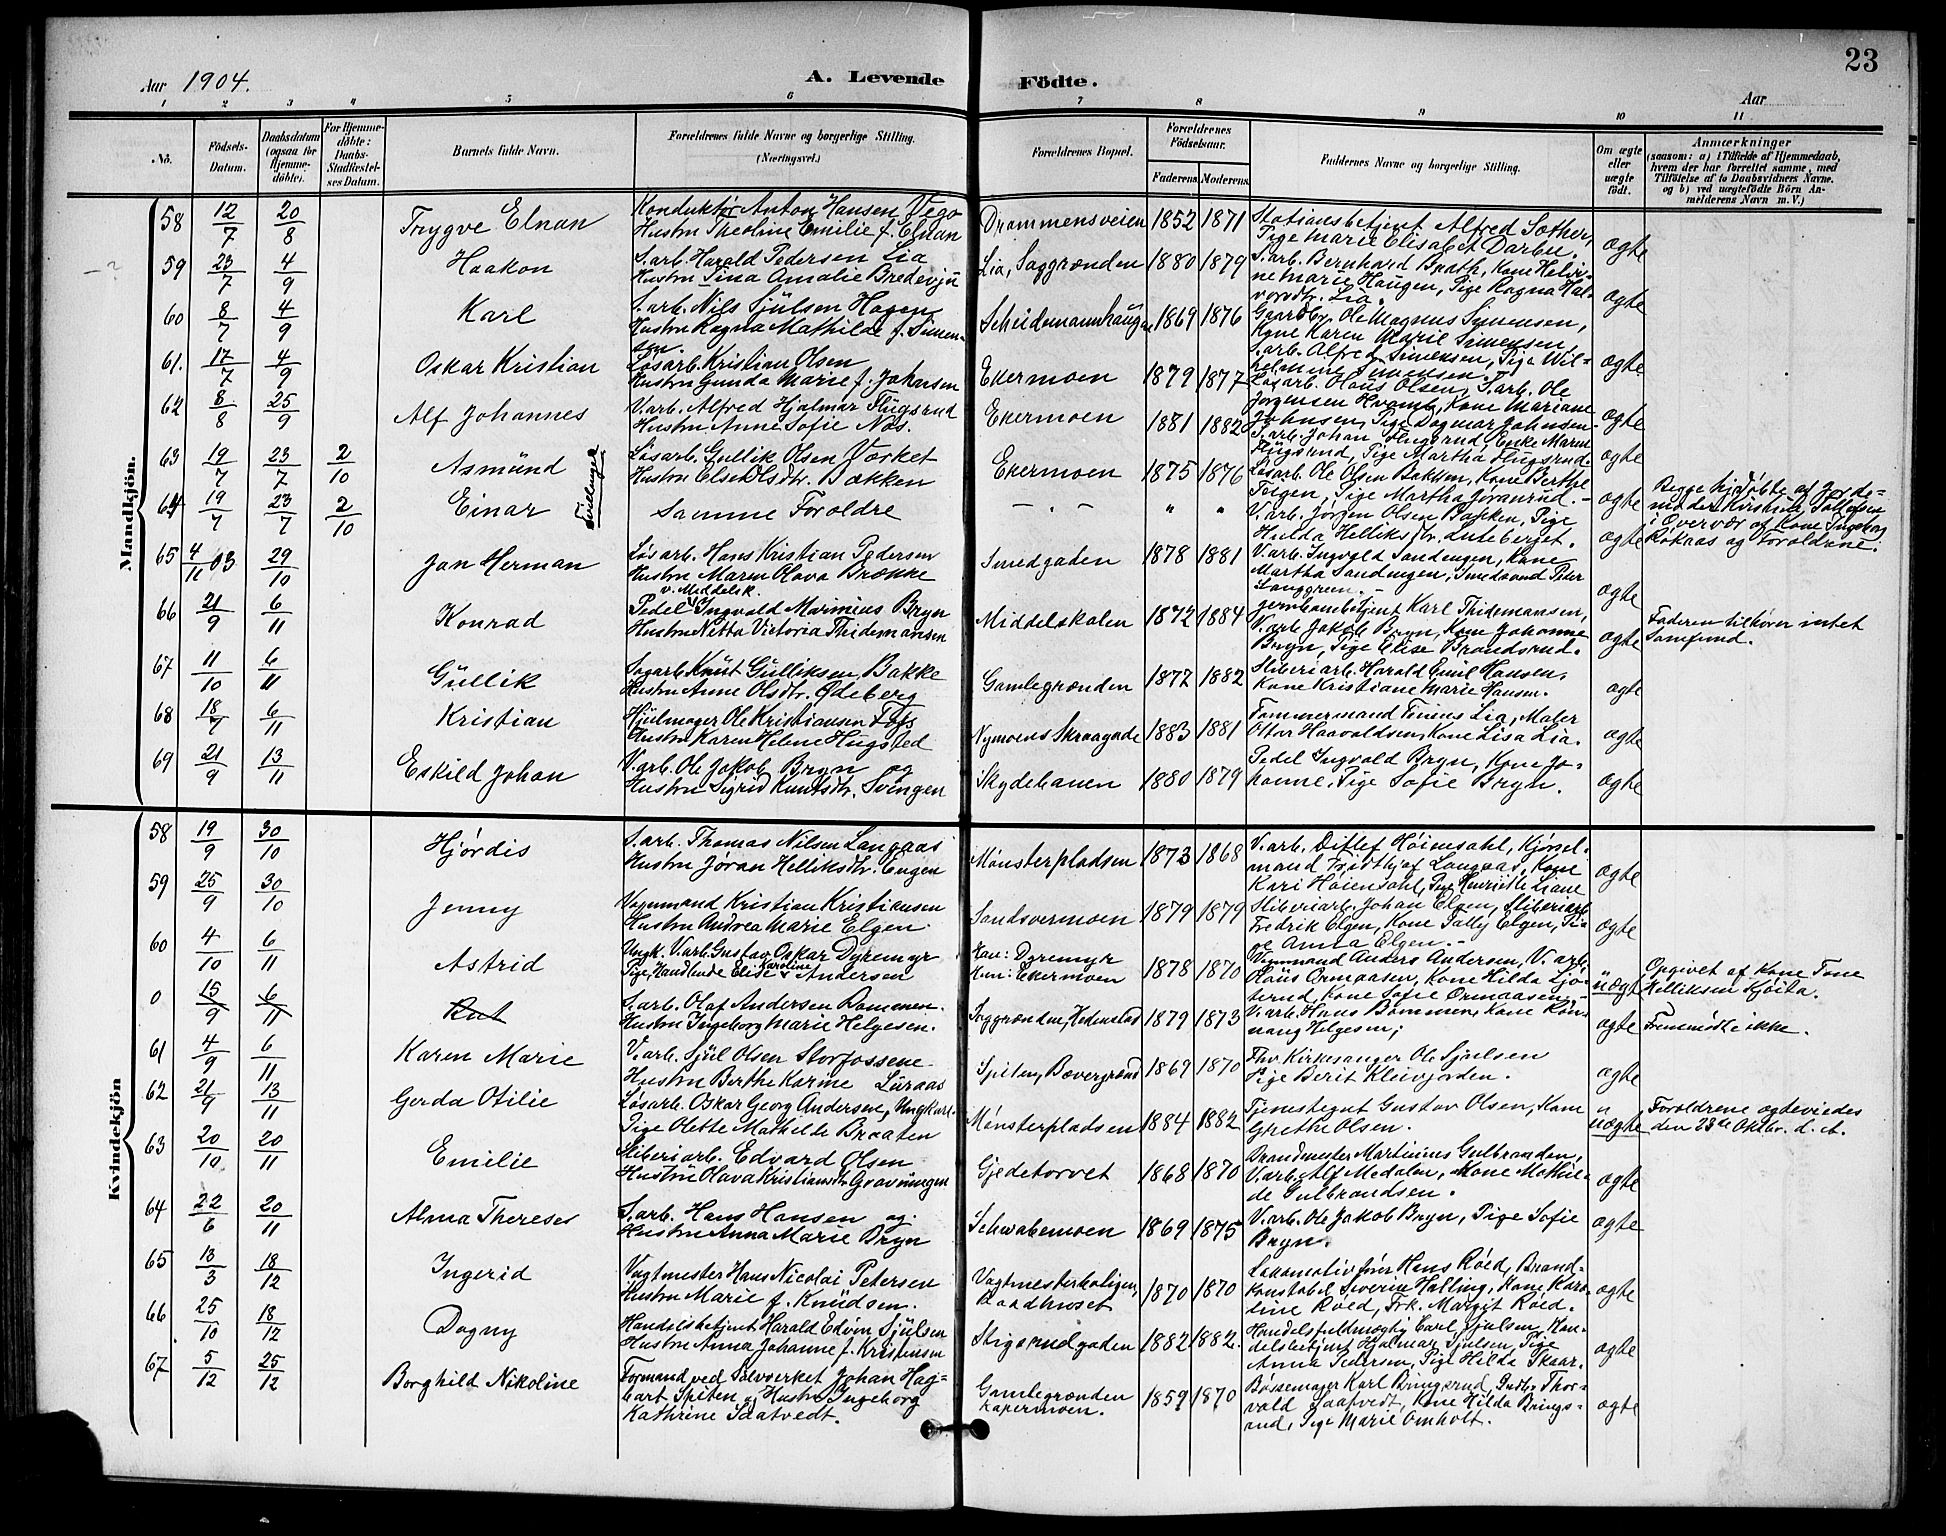 Aar 1904. A. Levende Födte. Aar 23
1 2 3 4 5 6 7 8 9 10 11
No. Födsels-Datum. Daabsdatum (ogsaa for Hjemmedöbte). For Hjemmedöbte: Daabs-Stadfæstelses Datum. Barnets fulde Navn. Forældrenes fulde Navne og borgerlige Stilling. (Næringsvei.) Forældrenes Bopæl. Forældrenes Födselsaar. Faderens. Moderens. Faddernes Navne og borgerlige Stilling. Om ægte eller uægte födt. Anmærkninger (saasom: a) i Tilfælde af Hjemmedaab, hvem der har forrettet samme, med Tilföielse af to Daabsvidners Navne. og b) ved uægtefödte Börn Anmelderens Navn m. V.)
Mandkjön.
58 12/7 20/8 Trygve Elnan Konduktør Anton Hansen Vego Hustru Theoline Emilie f. Elnan Drammensveien 1852 1871 Stationsbetjent Alfred Sæther, Pige Marie Elisabet Darbu. ægte
59 23/7 4/9 Haakon S.arb. Harald Pedersen Lia Hustru Tina Amalie Bredesju Lia, Saggrænden 1880 1879 S.arb. Bernhard Brath, Kone Helvine Marie Haugen, Pige Ragna Halvorsdtr. Lia. ægte
60 8/7 4/9 Karl S.arb. Nils Sjulsen Hagen Hustru Ragna Mathilde f. Simensen Scheidemannhaugen 1869 1876 Gaardbr. Ole Magnus Simensen, Kone Karen Marie Simensen, S.arb. Alfred Simensen, Pige Wilhelmine Simensen. ægte
61. 17/7 4/9 Oskar Kristian Løsarb. Kristian Olsen Hustru Gunda Marie f. Johnsen Ekermoen 1879 1877 Løsarb. Hans Olsen, S.arb. Ole Jørgensen Hvamb, Kone Mariane Johnsen, Pige Dagmar Johnsen. ægte
62 8/8 25/9 Alf Johannes V.arb. Alfred Hjalmar Flugsrud Hustru Anne Sofie Næs. Ekermoen 1881 1882 S.arb. Johan Flugsrud, Enke Maren Flugsrud, Pige Martha Flugsrud. ægte
63 19/7 23/7 2/10 Asmund Tvillinger Løsarb. Gullik Olsen Værket Hustru Else Olsdtr. Bækken Ekermoen 1875 1876 Løsarb. Ole Olsen Bakken, Kone Berthe Følgen, Pige Martha Jøranrud. - ægte
64 19/7 23/7 2/10 Einar Samme Forældre — " — " " V.arb. Jørgen Olsen Bækken, Pige Hulda Helliksdtr. Luteberget. ægte Begge hjdøbte af Jordemoderen Kristine Tollefsen i Overvær af Kone Ingeborg Røkaas og Forældrene.
65 4/11 03 29/10 Jan Herman Løsarb. Hans Kristian Pedersen Hustru Maren Olava Brække Smedgaden 1878 1881 V.arb. Ingvald Sandengen, Kone Martha Sandengen, Smedsvend Peter Langgreen. - ægte
66 21/9 6/11 Konrad Pedel v. Middelsk. Ingvald Marinius Bryn Hustru Netta Victoria Thidemansen Middelskolen 1872 1884 Jernbanebetjent Karl Thidemansen, V.arb. Jakob Bryn, Kone Johanne Bryn, Pige Elise Brandsrud. ægte Faderen tilhører intet Samfund.
67 11/10 6/11 Gullik Sagarb. Knut Gulliksen Bakke Hustru Anne Olsdtr. Ødeberg Gamlegrænden 1877 1882 Sliberiarb. Harald Emil Hansen, Kone Kristiane Marie Hansen. ægte
68 18/7 6/11 Kristian Hjulmager Ole Kristiansen Foss Hustru Karen Helene Hugsted Nymoens Skraagade 1883 1881 Tømmermand Tinius Lia, Maler Ottar Haavaldsen, Kone Lisa Lia. ægte
69 21/9 13/11 Eskild Johan V.arb. Ole Jakob Bryn og Hustru Sigrid Knutsdtr. Svingen Skydebanen 1880 1879 Pedel Ingvald Bryn, Kone Johanne, Pige Sofie Bryn. ægte
Kvindekjön
58 19/9 30/10 Hjørdis S.arb. Thomas Nilsen Langaas Hustru Jøran Helliksdtr. Engen Mønsterpladsen 1873 1868 V.arb. Ditlef Høiensahl, Kjørselmand Langaas, Kone Kari Høiensahl, Pige Henriette Liane ægte
59 25/9 30/10 Jenny Vognmand Kristian Kristiansen Hustru Andrea Marie Elgen. Sandsværmoen 1879 1879 Sliberiarb. Johan Elgen, Sliberiarb. Fredrik Elgen, Kone Tally Elgen, Pige Anna Elgen. - ægte
60 4/10 6/11 Astrid Ungk. V.arb. Gustav Oskar Dyremyr Pige, Handlende Elise Karoline Andersen Han: Dyremyr Hun: Ekermoen 1878 1870 Vognmand Anders Andersen, V.arb. Hans Ormaasen, Kone Hilda Ljøterud, Kone Sofie Ormaasen. - uægte Opgivet af Kone Tone Helliksen Kjøita.
0 15/9 6/11 Rut S.arb. Olaf Andersen Dammen. Hustru Ingeborg Marie Helgesen. Saggrænden, Hedenstad 1879 1873 V.arb. Hans Dammen, Kone Rønnaug Helgesen; ægte Fremmødte ikke.
61 4/9 6/11 Karen Marie V.arb. Sjul Olsen Storfossene Hustru Berthe Karine Luraas Spiten, Bævergrænd 1869 1870 Fhv. Kirkesanger Ole Sjulsen Pige Berit Kleivjorden. ægte
62 21/9 13/11 Gerda Otilie Løsarb. Oskar Georg Andersen, Ungkarl. Pige Olette Mathilde Braaten Mønsterpladsen 1884 1882 Tjenestegut Gustav Olsen, Kone Grethe Olsen. uægte Forældrene ægteviedes den 23de Oktbr. d. A.
63 20/10 20/11 Emilie Sliberiarb. Edvard Olsen Hustru Olava Kristiansdtr. Gravningen Gjedetorvet 1868 1870 Brandmester Martinius Gulbrandsen, V.arb. Alf Medalen, Kone Mathilde Gulbrandsen. ægte
64 22/6 20/11 Alma Therese S.arb. Hans Hansen og Hustru Anna Marie Bryn Schwabemoen 1869 1875 V.arb. Ole Jakob Bryn, Pige Sofie Bryn. ægte
65 13/3 18/12 Ingerid Vagtmester Hans Nicolai Petersen Hustru Marie f. Knudsen. Vagtmesterboligen, Raadhuset 1870 1870 Lokomotivfører Hans Røed, Brandkonstabel Severin Halling, Kone Karoline Røed, Frk. Margit Røed. ægte
66 25/10 18/12 Dagny Handelsbetjent Harald Edvin Sjulsen Hustru Anna Johanne f. Kristensen Stigsrudgaden 1882 1882. Handelsfuldmægtig Carl Sjulsen, Handelsbetjent Hjalmar Sjulsen, Pige Anna Pedersen, Pige Hilda Skaar. ægte
67 5/12 25/12 Borghild Nikoline Formand ved Sølvverket Johan Hagbart Spiten og Hustru Ingeborg Kathrine Saatvedt. Gamlegrænden Lapermoen. 1859 1870 Bøssemager Karl Bringsrud, Thorvald Saatvedt, Kone Hilda Bringsrud, Pige Marie Omholt. ægte